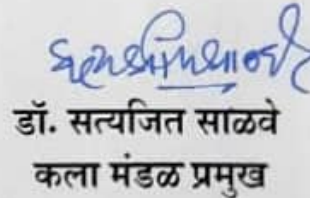 डॉ. सत्यजित साळवे
कला मंडळ प्रमुख